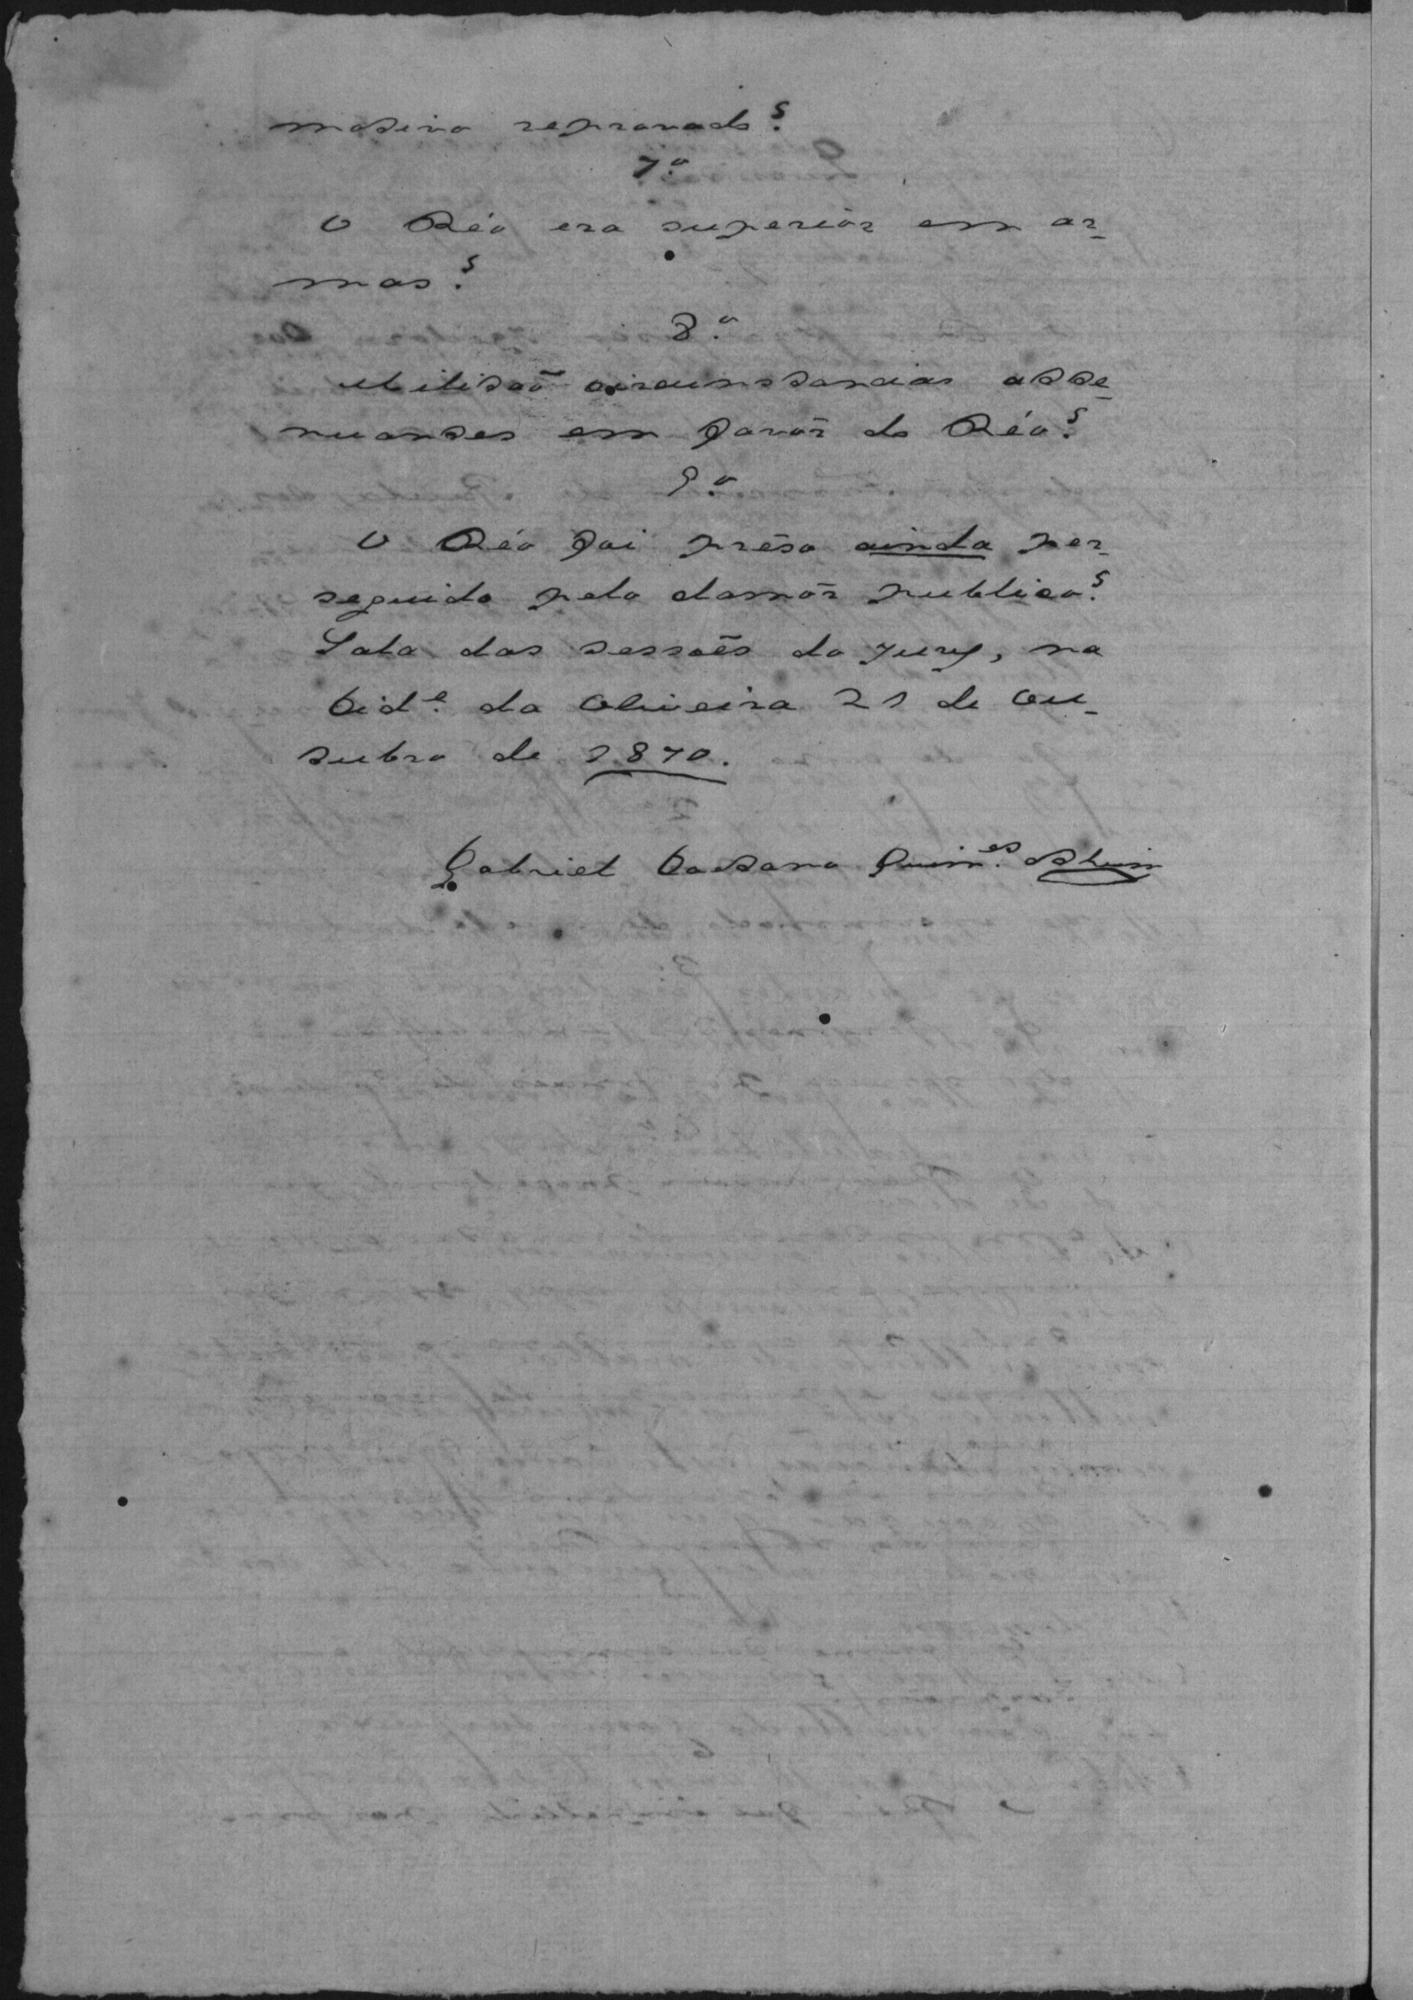 motivo reprovado?
7.º
O Réo era superiôr em ar-
mas?
8.º
Militaõ circunstancias atte-
nuantes em favôr do Réo?
9.º
O Réo foi prêso ainda per-
seguido pelo clamôr publico?
Sala das sessoẽs do Jury, na
Cid.e da Oliveira 21 de Ou-
tubro de 1870.
Gabriel Caetano Guim.es